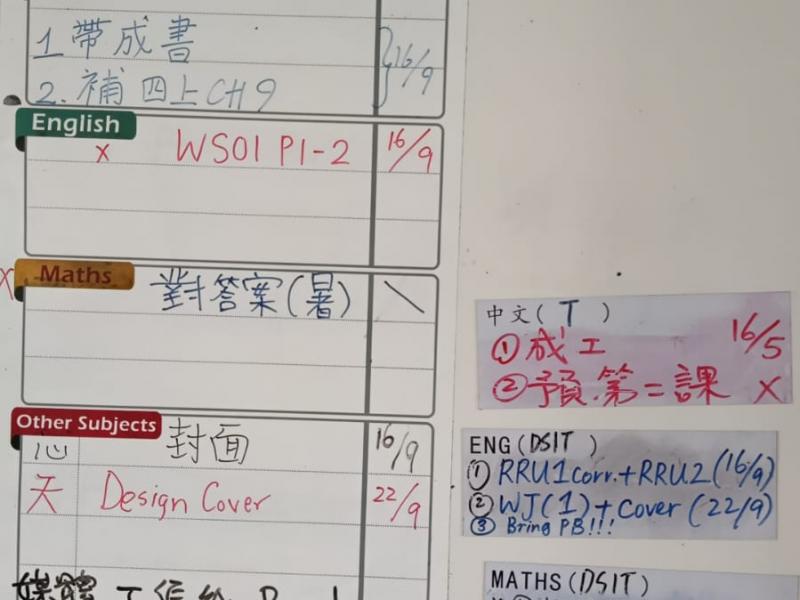 1. 帶成書
2. 補四上CH9 } 16/9
English
x WS01 P1-2 16/9
Maths
x 對答案(暑) \
Other Subjects
封面 16/9
天 Design Cover 22/9
媒體
中文( T )
① 成工 16/5
② 預.第二課 X
ENG(DSIT )
① RRU1corr.+RRU2(16/9)
② WJ(1)+Cover (22/9)
③ Bring PB!!!
MATHS(DSIT)